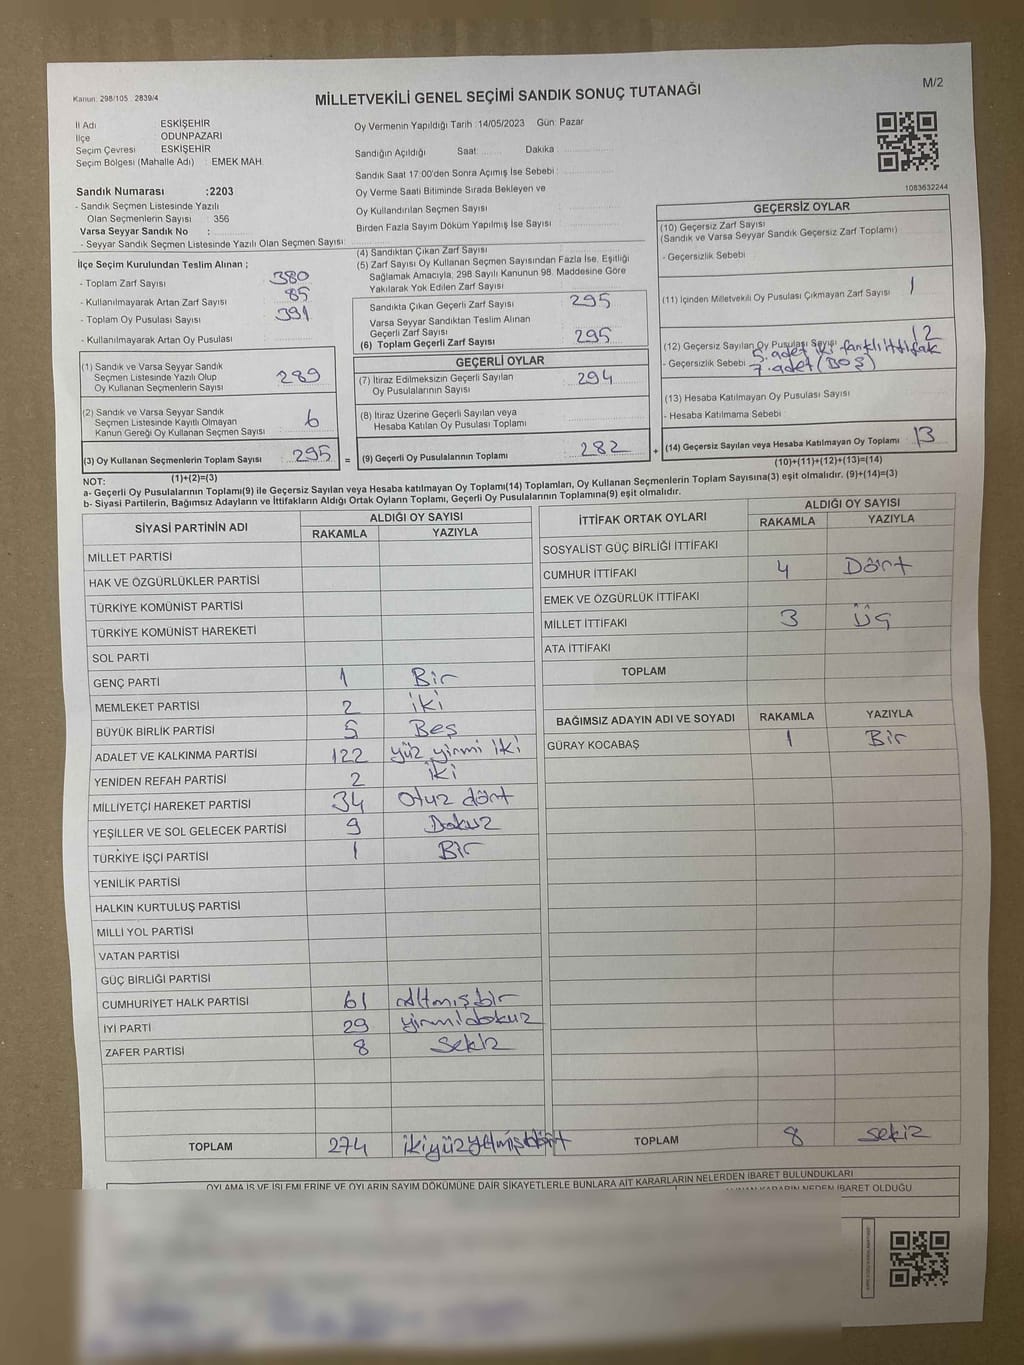 Kanun: 298/105 2839/4
MİLLETVEKİLİ GENEL SEÇİMİ SANDIK SONUÇ TUTANAĞI
M/2
İl Adı ESKİŞEHİR
İlçe ODUNPAZARI
Seçim Çevresi ESKİŞEHİR
Seçim Bölgesi (Mahalle Adı) : EMEK MAH.
Oy Vermenin Yapıldığı Tarih :14/05/2023 Gün: Pazar
Sandığın Açıldığı Saat: Dakika :
Sandık Saat 17:00'den Sonra Açımış İse Sebebi :
Oy Verme Saati Bitiminde Sırada Bekleyen ve
Oy Kullandırılan Seçmen Sayısı
Birden Fazla Sayım Döküm Yapılmış İse Sayısı
1083632244
Sandık Numarası :2203
- Sandık Seçmen Listesinde Yazılı
Olan Seçmenlerin Sayısı : 356
Varsa Seyyar Sandık No :
- Seyyar Sandık Seçmen Listesinde Yazılı Olan Seçmen Sayısı:
İlçe Seçim Kurulundan Teslim Alınan ;
- Toplam Zarf Sayısı 380
- Kullanılmayarak Artan Zarf Sayısı 85
- Toplam Oy Pusulası Sayısı 391
- Kullanılmayarak Artan Oy Pusulası
(1) Sandık ve Varsa Seyyar Sandık
Seçmen Listesinde Yazılı Olup
Oy Kullanan Seçmenlerin Sayısı : 289
(2) Sandık ve Varsa Seyyar Sandık
Seçmen Listesinde Kayıtlı Olmayan
Kanun Gereği Oy Kullanan Seçmen Sayısı : 6
(3) Oy Kullanan Seçmenlerin Toplam Sayısı : 295 =
(1)+(2)=(3)
(4) Sandıktan Çıkan Zarf Sayısı
(5) Zarf Sayısı Oy Kullanan Seçmen Sayısından Fazla İse, Eşitliği
Sağlamak Amacıyla, 298 Sayılı Kanunun 98. Maddesine Göre
Yakılarak Yok Edilen Zarf Sayısı
Sandıkta Çıkan Geçerli Zarf Sayısı 295
Varsa Seyyar Sandıktan Teslim Alınan
Geçerli Zarf Sayısı
(6) Toplam Geçerli Zarf Sayısı 295
GEÇERLİ OYLAR
(7) İtiraz Edilmeksizin Geçerli Sayılan
Oy Pusulalarının Sayısı 294
(8) İtiraz Üzerine Geçerli Sayılan veya
Hesaba Katılan Oy Pusulası Toplamı
(9) Geçerli Oy Pusulalarının Toplamı : 282 +
GEÇERSİZ OYLAR
(10) Geçersiz Zarf Sayısı
(Sandık ve Varsa Seyyar Sandık Geçersiz Zarf Toplamı)
- Geçersizlik Sebebi
(11) İçinden Milletvekili Oy Pusulası Çıkmayan Zarf Sayısı 1
(12) Geçersiz Sayılan Oy Pusulası Sayısı 12
5 adet iki farklı ittifak
- Geçersizlik Sebebi 7 adet (BOŞ)
(13) Hesaba Katılmayan Oy Pusulası Sayısı
- Hesaba Katılmama Sebebi
(14) Geçersiz Sayılan veya Hesaba Katılmayan Oy Toplamı 13
(10)+(11)+(12)+(13)=(14)
NOT:
a- Geçerli Oy Pusulalarının Toplamı(9) ile Geçersiz Sayılan veya Hesaba katılmayan Oy Toplamı(14) Toplamları, Oy Kullanan Seçmenlerin Toplam Sayısına(3) eşit olmalıdır. (9)+(14)=(3)
b- Siyasi Partilerin, Bağımsız Adayların ve İttifakların Aldığı Ortak Oyların Toplamı, Geçerli Oy Pusulalarının Toplamına(9) eşit olmalıdır.
SİYASİ PARTİNİN ADI ALDIĞI OY SAYISI
RAKAMLA YAZIYLA
MİLLET PARTİSİ
HAK VE ÖZGÜRLÜKLER PARTİSİ
TÜRKİYE KOMÜNİST PARTİSİ
TÜRKİYE KOMÜNİST HAREKETİ
SOL PARTİ
GENÇ PARTİ 1 Bir
MEMLEKET PARTİSİ 2 iki
BÜYÜK BİRLİK PARTİSİ 5 Beş
ADALET VE KALKINMA PARTİSİ 122 yüz yirmi iki
YENİDEN REFAH PARTİSİ 2 iki
MİLLİYETÇİ HAREKET PARTİSİ 34 Otuz dört
YEŞİLLER VE SOL GELECEK PARTİSİ 9 Dokuz
TÜRKİYE İŞÇİ PARTİSİ 1 Bir
YENİLİK PARTİSİ
HALKIN KURTULUŞ PARTİSİ
MİLLİ YOL PARTİSİ
VATAN PARTİSİ
GÜÇ BİRLİĞİ PARTİSİ
CUMHURİYET HALK PARTİSİ 61 altmışbir
İYİ PARTİ 29 yirmidokuz
ZAFER PARTİSİ 8 Sekiz
TOPLAM 274 ikiyüzyetmişdört
İTTİFAK ORTAK OYLARI ALDIĞI OY SAYISI
RAKAMLA YAZIYLA
SOSYALİST GÜÇ BİRLİĞİ İTTİFAKI
CUMHUR İTTİFAKI 4 Dört
EMEK VE ÖZGÜRLÜK İTTİFAKI
MİLLET İTTİFAKI 3 Üç
ATA İTTİFAKI
TOPLAM
BAĞIMSIZ ADAYIN ADI VE SOYADI RAKAMLA YAZIYLA
GÜRAY KOCABAŞ 1 Bir
TOPLAM 8 sekiz
OYLAMA İŞ VE İŞLEMLERİNE VE OYLARIN SAYIM DÖKÜMÜNE DAİR ŞİKAYETLERLE BUNLARA AİT KARARLARIN NELERDEN İBARET BULUNDUKLARI
KARARIN NEDEN İBARET OLDUĞU